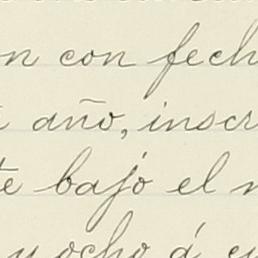 n con fech
año, inscr
te bajo el n
y ocho á